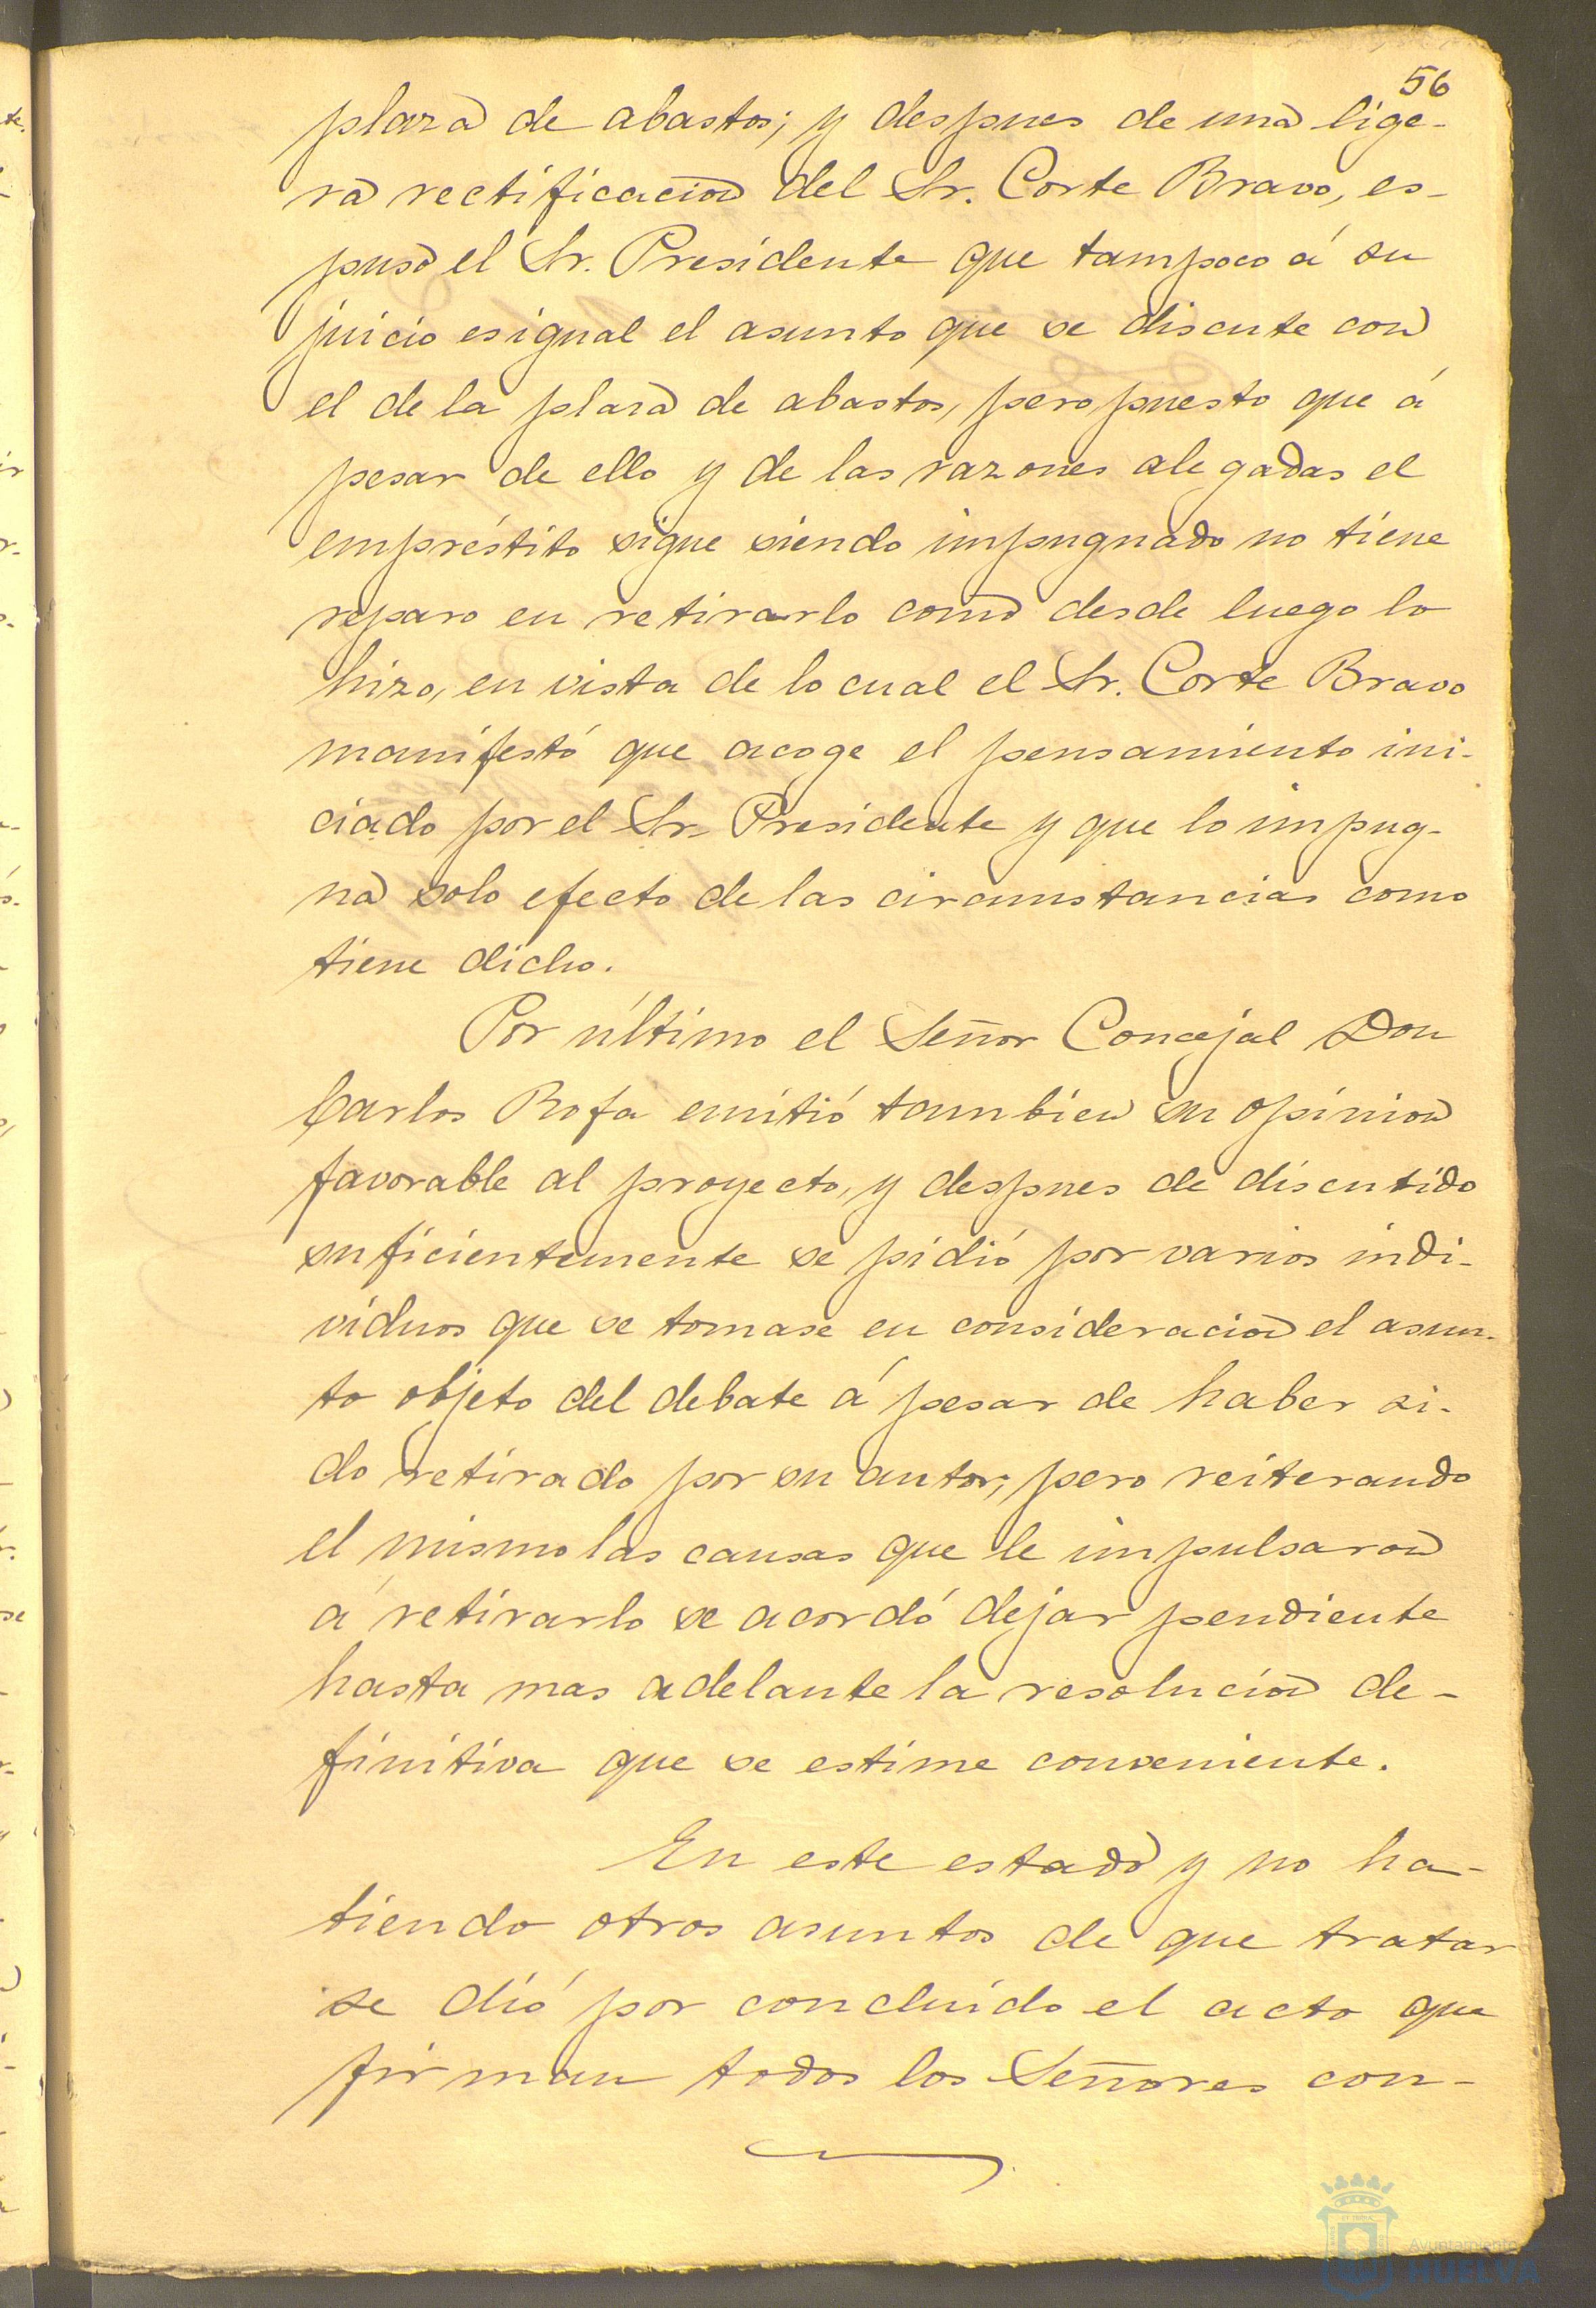 56
plaza de abastos; y despues de una lige-
ra rectificacion del Sr. Corte Bravo, es-
puso el Sr. Presidente que tampoco á su
juicio es igual el asunto que se discute con
el de la plaza de abastos, pero puesto que á
pesar de ello y de las razones alegadas el
empréstito sigue siendo impugnado no tiene
reparo en retirarlo como desde luego lo
hizo, en vista de lo cual el Sr. Corte Bravo
manifestó que acoge el pensamiento ini-
ciado por el Sr. Presidente y que lo impug-
na solo efecto de las circunstancias como
tiene dicho.
Por último el Señor Concejal Don
Carlos Rofa emitió tambien su opinion
favorable al proyecto, y despues de discutido
suficientemente se pidió por varios indi-
viduos que se tomase en consideracion el asun-
to objeto del debate á pesar de haber si-
do retirado por su autor; pero reiterando
el mismo las causas que le impulsaron
á retirarlo se acordó dejar pendiente
hasta mas adelante la resolucion de-
finitiva que se estime conveniente.
En este estado y no ha-
biendo otros asuntos de que tratar
se dió por concluido el acto que
firman todos los Señores con-
Ayuntamiento
HUELVA